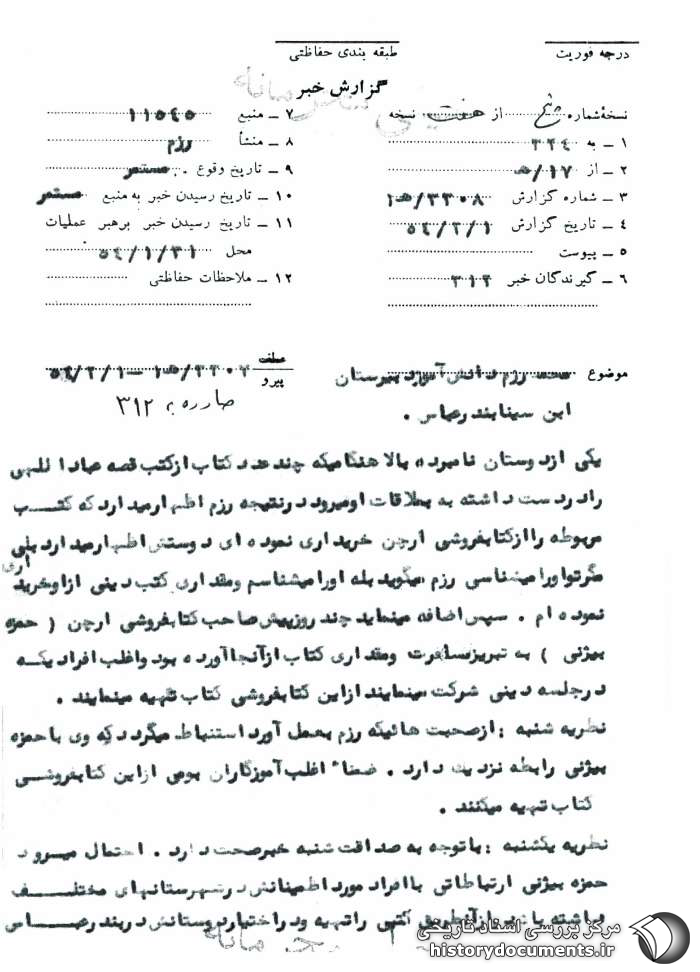 درجه فوریت
طبقه بندی حفاظتی
گزارش خبر
نسخه شماره پنج از هفت نسخه
۱ ـ به ۳۲۴
۲ ـ از ۱۷/ھ
۳ ـ شماره گزارش ۱۵/۳۳۰۸
۴ ـ تاریخ گزارش ۵۴/۲/۱
۵ ـ پیوست
۶ ـ گیرندگان خبر ۳۱۲
۷ ـ منبع ۱۱۵۴۵
۸ ـ منشأ رزم
۹ ـ تاریخ وقوع مستمر
۱۰ ـ تاریخ رسیدن خبر به منبع مستمر
۱۱ ـ تاریخ رسیدن خبر برهبر عملیات
محل ۵۴/۱/۳۱
۱۲ ـ ملاحظات حفاظتی
موضوع محمد رزم دانش آموز دبیرستان
ابن سینا بندرعباس .
عطف
پیرو ۱۵/۳۳۰۲ – ۵۴/۲/۱
صادره به ۳۱۲
یکی از دوستان نامبرده بالا هنگامیکه چند عدد کتاب از کتب قصه عباد اللهی
را در دست داشته به ملاقات او میرود در نتیجه رزم اظهار میدارد که کتب
مربوطه را از کتابفروشی ارجن خریداری نموده ای دوستش اظهار میدارد بلی
مگر تو او را میشناسی رزم میگوید بله او را میشناسم و مقداری کتب دینی از او خریداری
نموده ام . سپس اضافه مینماید چند روز پیش صاحب کتابفروشی ارجن ( حمزه
بیژنی ) به تبریز مسافرت و مقداری کتاب از آنجا آورده بود و اغلب افراد یکه
در جلسه دینی شرکت مینمایند از این کتابفروشی کتاب تهیه مینمایند .
نظریه شنبه : از صحبت هائیکه رزم بعمل آورد استنباط میگردد که وی با حمزه
بیژنی رابطه نزدیک دارد . ضمناً اغلب آموزگاران بومی از این کتابفروشی
کتاب تهیه میکنند .
نظریه یکشنبه : با توجه به صداقت شنبه خبر صحت دارد . احتمال میرود
حمزه بیژنی ارتباطاتی با افراد مورد اطمینانش در شهرستانهای مختلف
داشته باشد و از آنطریق کتبی را تهیه و در اختیار دوستانش در بندرعباس
مرکز بررسی اسناد تاریخی
historydocuments.ir